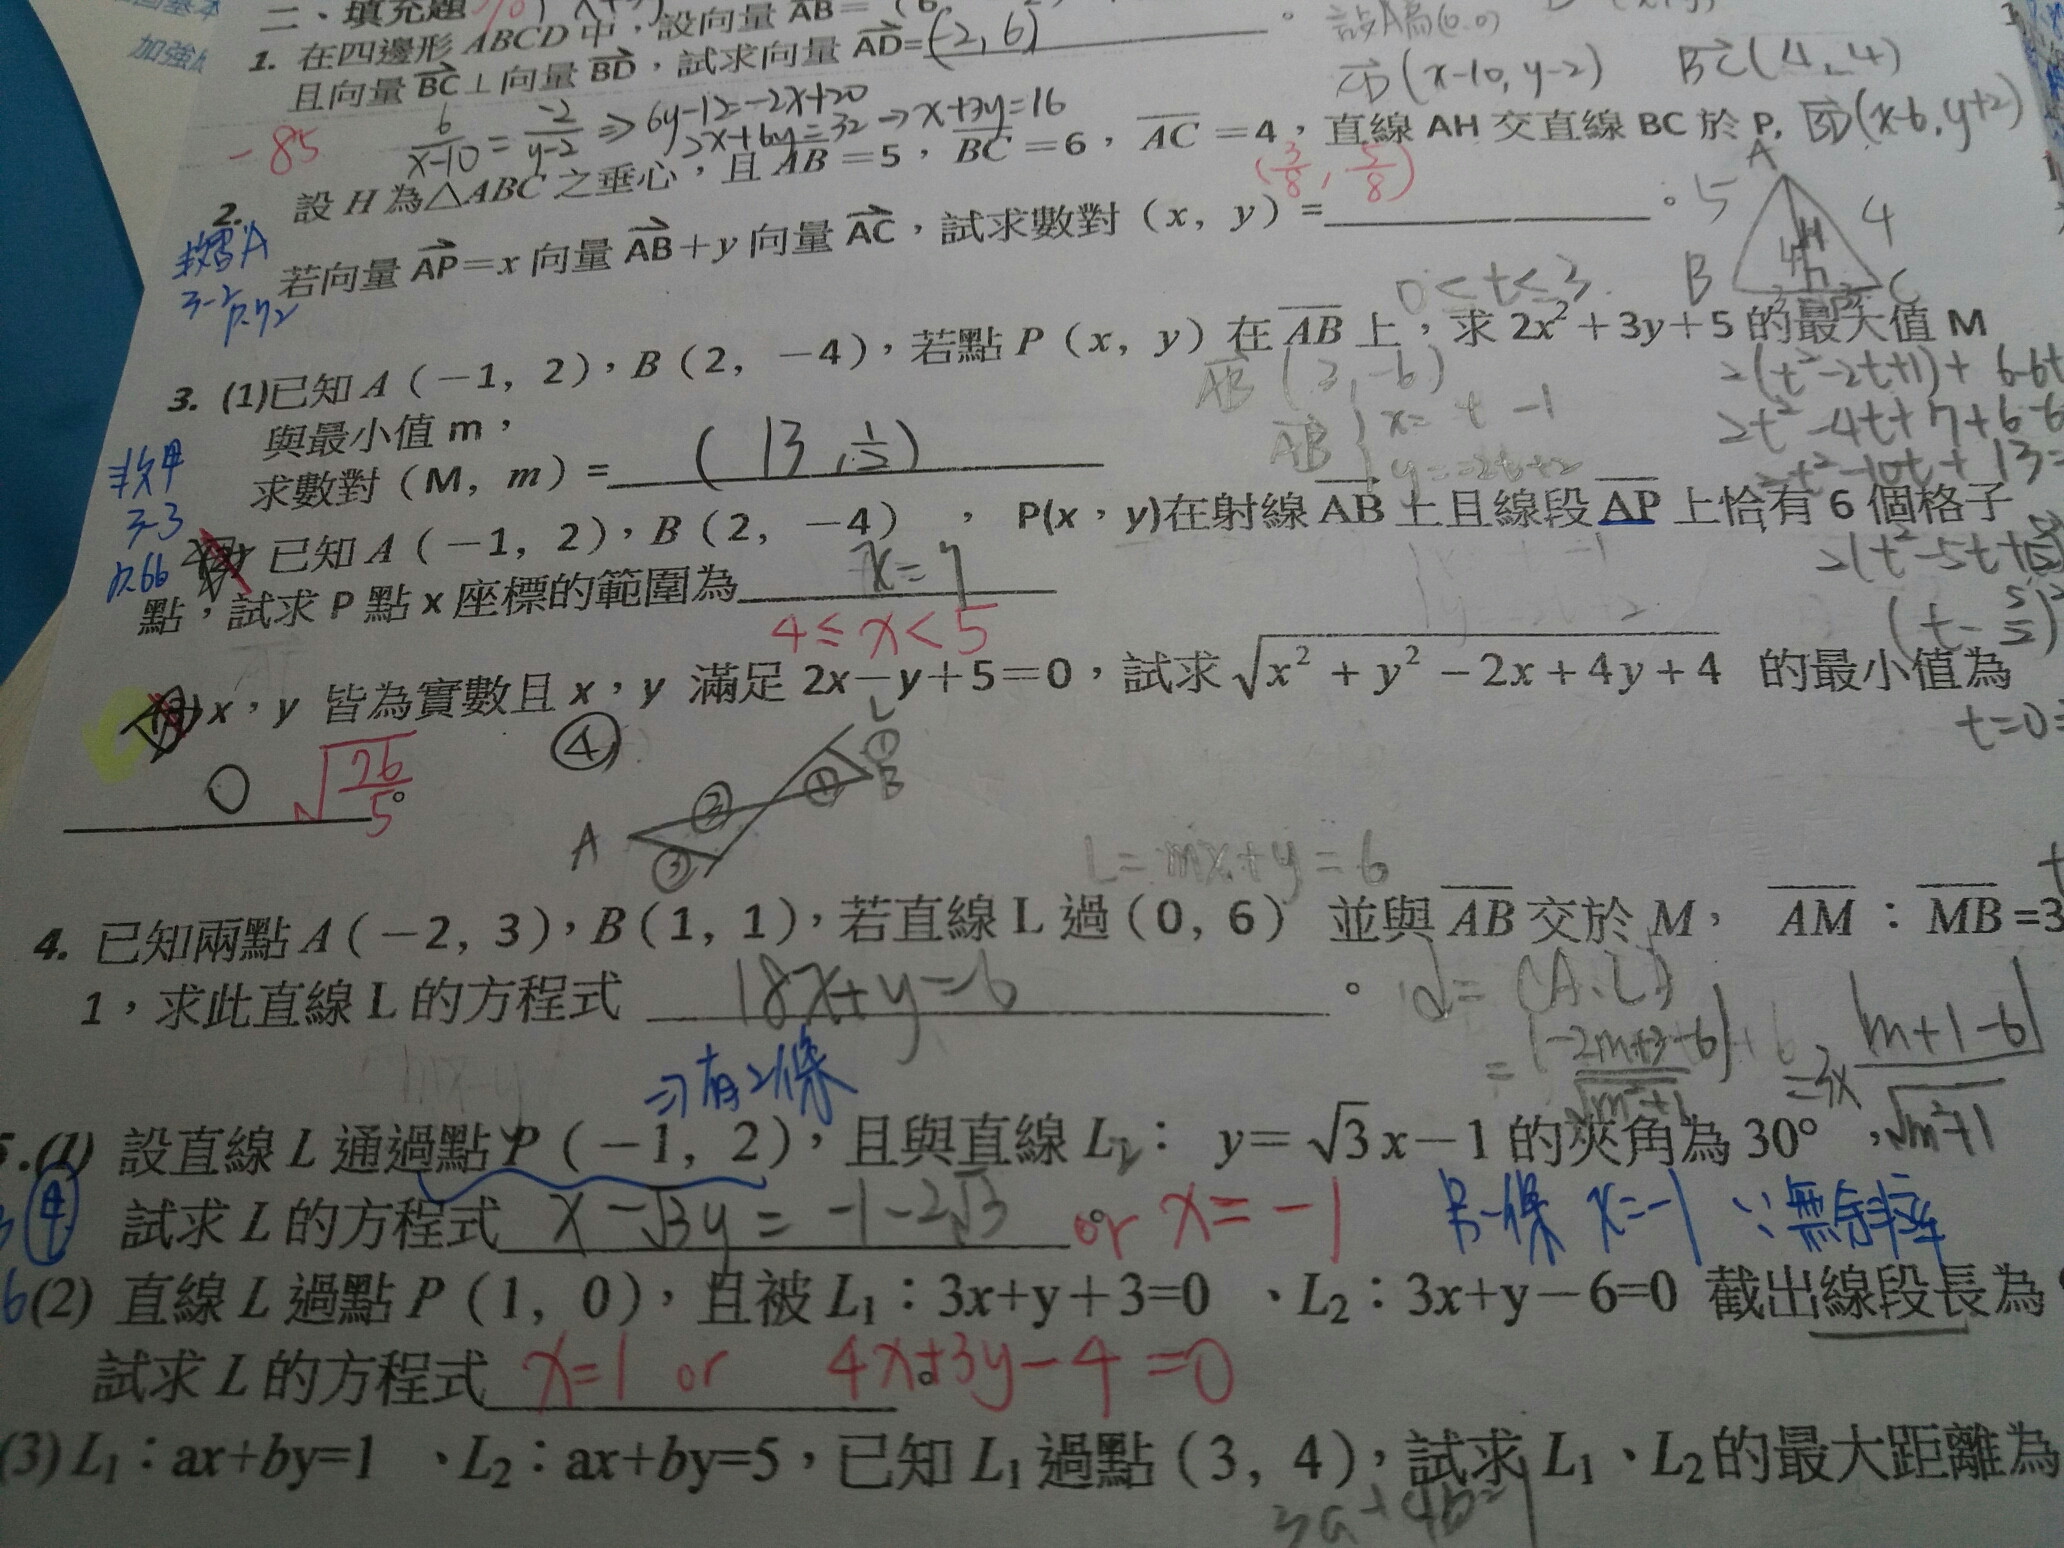 二、填充題
1. 在四邊形 ABCD 中，設向量 AB=（6,
且向量 BC⊥向量 BD，試求向量 AD=(-2,6)。
設A為(0,0)
CD(x-10, y-2) BC(4, 4)
BD(x-6, y+2)
-85
6/(x-10) = -2/(y-2) ⇒ 6y-12=-2x+20
2x+6y=32 → x+3y=16
2. 設 H 為△ABC 之垂心，且 AB=5，BC=6，AC=4，直線 AH 交直線 BC 於 P,
若向量 AP=x 向量 AB+y 向量 AC，試求數對（x, y）= (3/8, 5/8)。
A
5 H 4
B C
3-2
p.72
0<t<3
3. (1)已知 A（-1, 2），B（2, -4），若點 P（x, y）在 AB 上，求 2x²+3y+5 的最大值 M
與最小值 m，
求數對（M, m）= (13, 1/2)
AB (3, -6)
AB { x= t -1
y=-2t+2
2(t²-2t+1)+6-6t
2t²-4t+7+6-6
2t²-10t+13=
3-3
p.66
已知 A（-1, 2），B（2, -4），P(x，y)在射線 AB 上且線段 AP 上恰有 6 個格子
點，試求 P 點 x 座標的範圍為 x=7
4≤x<5
x，y 皆為實數且 x，y 滿足 2x-y+5=0，試求√x²+y²-2x+4y+4 的最小值為
t=0
0 √26/5。
④
A ③ L B
L=mx+y=6
4. 已知兩點 A（-2, 3），B（1, 1），若直線 L 過（0, 6）並與 AB 交於 M，AM：MB=3
1，求此直線 L 的方程式 18x+y=6。
d=(A、L)
=|-2m+3-6|/√m²+1 =3x |m+1-6|/√m²+1
⇒有2條
5.(1) 設直線 L 通過點 P（-1, 2），且與直線 L₁：y=√3x-1 的夾角為 30°，
試求 L 的方程式 x-√3y=-1-2√3。or x=-1 另一條 x=-1 ∵無斜率
(2) 直線 L 過點 P（1, 0），且被 L₁：3x+y+3=0、L₂：3x+y-6=0 截出線段長為
試求 L 的方程式 x=1 or 4x+3y-4=0。
(3) L₁：ax+by=1、L₂：ax+by=5，已知 L₁ 過點（3, 4），試求 L₁、L₂的最大距離為
3a+4b=1